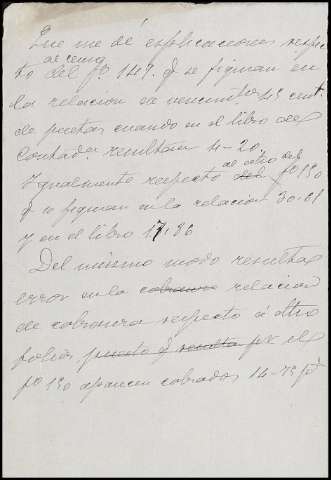 Que me dé esplicaciones respec
to del fº 149. q se figuran en
la relacion
de pesetas cuando en el libro del
Contador resultan 4-20.
Ygualmente respecto al otro del fº 130
q se figuran en la relacion 30-81
y en el libro 17,86
Del mismo modo resulta
error en la cobranza relacion
de cobranza respecto á otro
folio, puesto q resulta pr el
fº 130 aparecen cobradas 14-75